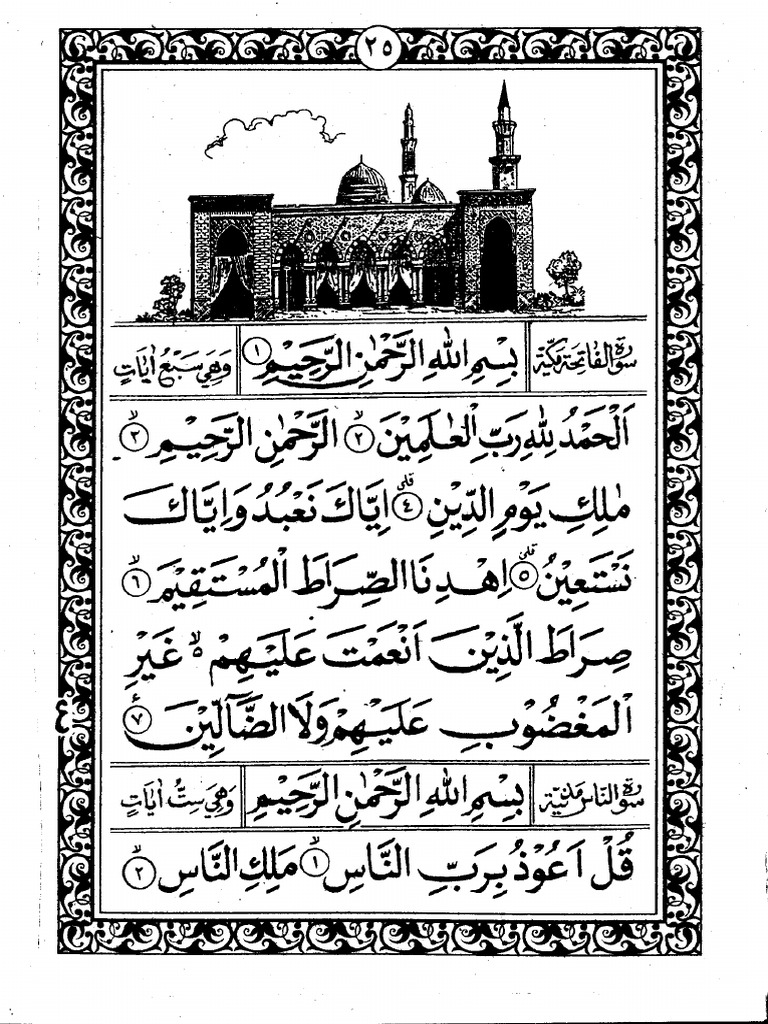 ٢٥
سورة الفاتحة مكية بِسْمِ اللهِ الرَّحْمٰنِ الرَّحِيْمِ ١ وَهِيَ سَبْعُ اٰيَاتٍ
اَلْحَمْدُ لِلّٰهِ رَبِّ الْعٰلَمِيْنَ ۙ ٢ الرَّحْمٰنِ الرَّحِيْمِ ۙ ٣
مٰلِكِ يَوْمِ الدِّيْنِ ۗ ٤ اِيَّاكَ نَعْبُدُ وَاِيَّاكَ
نَسْتَعِيْنُ ۗ ٥ اِهْدِنَا الصِّرَاطَ الْمُسْتَقِيْمَ ۙ ٦
صِرَاطَ الَّذِيْنَ اَنْعَمْتَ عَلَيْهِمْ ۙ٥ غَيْرِ
الْمَغْضُوْبِ عَلَيْهِمْ وَلَا الضَّآلِّيْنَ ٧
ع
سورة الناس مدنية بِسْمِ اللهِ الرَّحْمٰنِ الرَّحِيْمِ وَهِيَ سِتُّ اٰيَاتٍ
قُلْ اَعُوْذُ بِرَبِّ النَّاسِ ۙ ١ مَلِكِ النَّاسِ ۙ ٢